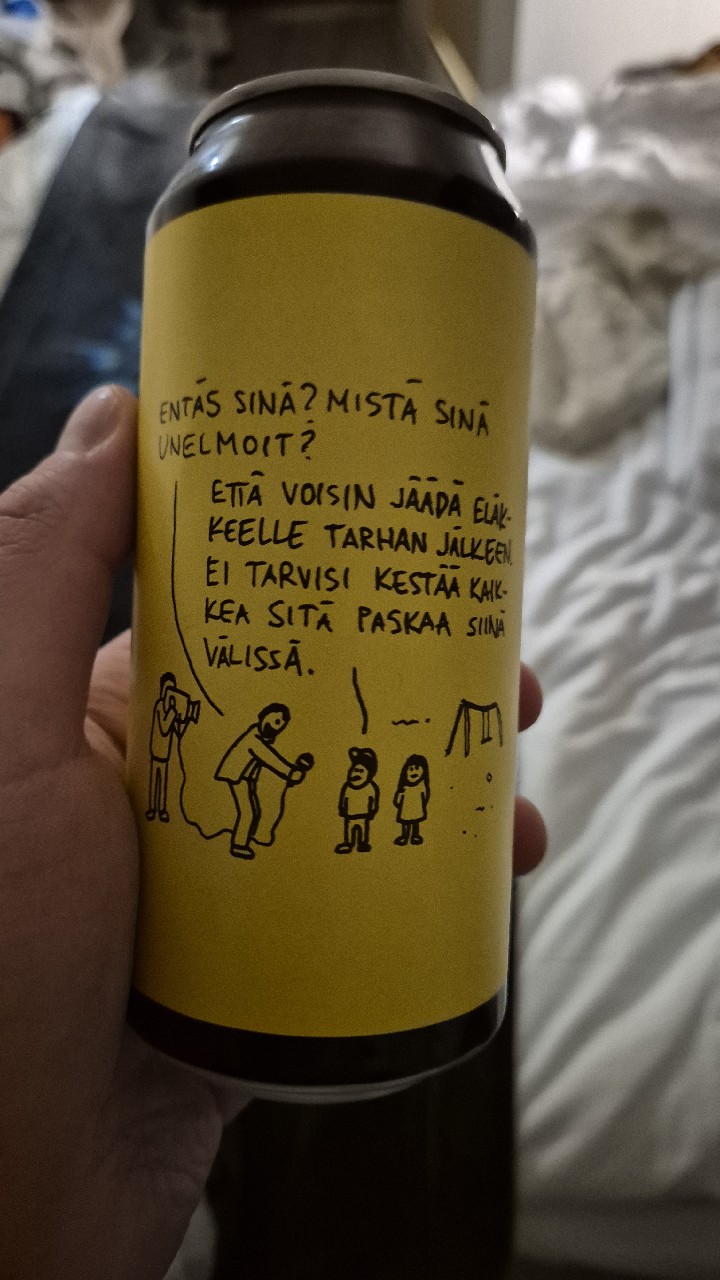 ENTÄS SINÄ? MISTÄ SINÄ
UNELMOIT?
ETTÄ VOISIN JÄÄDÄ ELÄK-
KEELLE TARHAN JÄLKEEN.
EI TARVISI KESTÄÄ KAIK-
KEA SITÄ PASKAA SIINÄ
VÄLISSÄ.